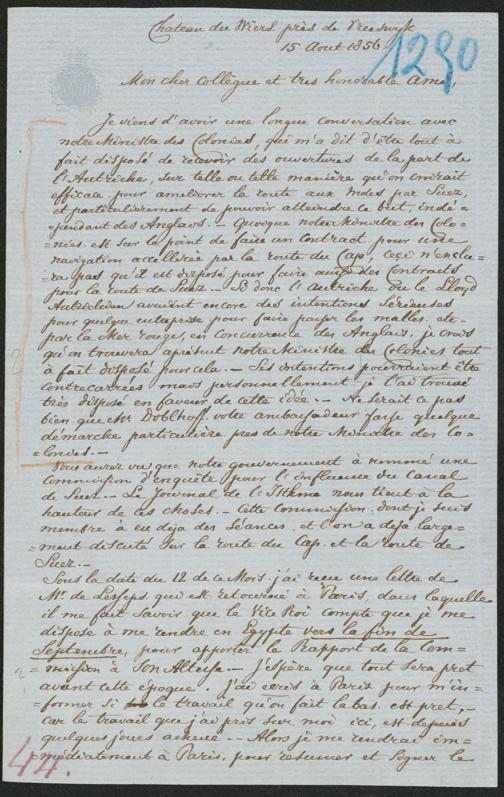 Chateau du Wiers près de Vreeswyk
15 Aout 1856
1290
Mon cher Collègue et tres honorable Ami,
Je viens d'avoir une longue conversation avec
notre Ministre des Colonies, qui m'a dit d'être tout à
fait disposé de recevoir des ouvertures de la part de
l'Autriche, sur telle ou telle manière qu'on croirait
efficace pour ameliorer la route aux Indes par Suez,
et particulierement de pouvoir atteindre ce but, indé=
=pendant des Anglais. — Quoique notre Ministre des Colo=
=nies est sur le point de faire un Contract pour une
navigation accellerée par la route du Cap, ceci n'exclu=
=ra pas qu'il est disposé pour faire aussi des Contracts
pour la route de Suez. — Si donc l'Autriche ou le Lloyd
Autrichien avaient encore des intentions Sérieuses
pour quelque entreprise pour faire passer les malles etc.
par la Mer rouge, en Concurrence des Anglais, je crois
qu'on trouvera aprésent notre Ministre des Colonies tout
à fait disposé pour cela. — Ses intentions pourraient être
contrecarrées mais personnellement je l'ai trouvé
très disposé en faveur de cette idée. — Ne serait ce pas
bien que Mr Doblhoff, votre ambassadeur fasse quelque
démarche particulière pres de notre Ministre des Co=
=lonies. —
Vous aurez vu que notre gouvernement à nommé une
Commission d'enquête pour l'influence du Canal
de Suez. — Le Journal de l'Isthme nous tient à la
hauteur de ces choses. — Cette Commission, dont je suis
membre à eu deja des Séances, et l'on a deja large=
=ment discuté sur la route du Cap et la route de
Suez. —
Sous la date du 12 de ce Mois j'ai recu une lettre de
Mr. de Lesseps qui est retourné à Paris, dans laquelle
il me fait savoir que le Vice Roi compte que je me
dispose à me rendre en Egypte vers la fin de
Septembre, pour apporter le Rapport de la Com=
=mission à Son Altesse. — J'espère que tout sera pret
avant cette époque. J'ai ecris à Paris pour m'in=
=former si le travail qu'on fait labas est pret,
car le travail que j'ai pris sur moi ici, est depuis
quelques jours achevé. — Alors je me rendrai im=
=médiatement à Paris, pour resumer et signer le
44.